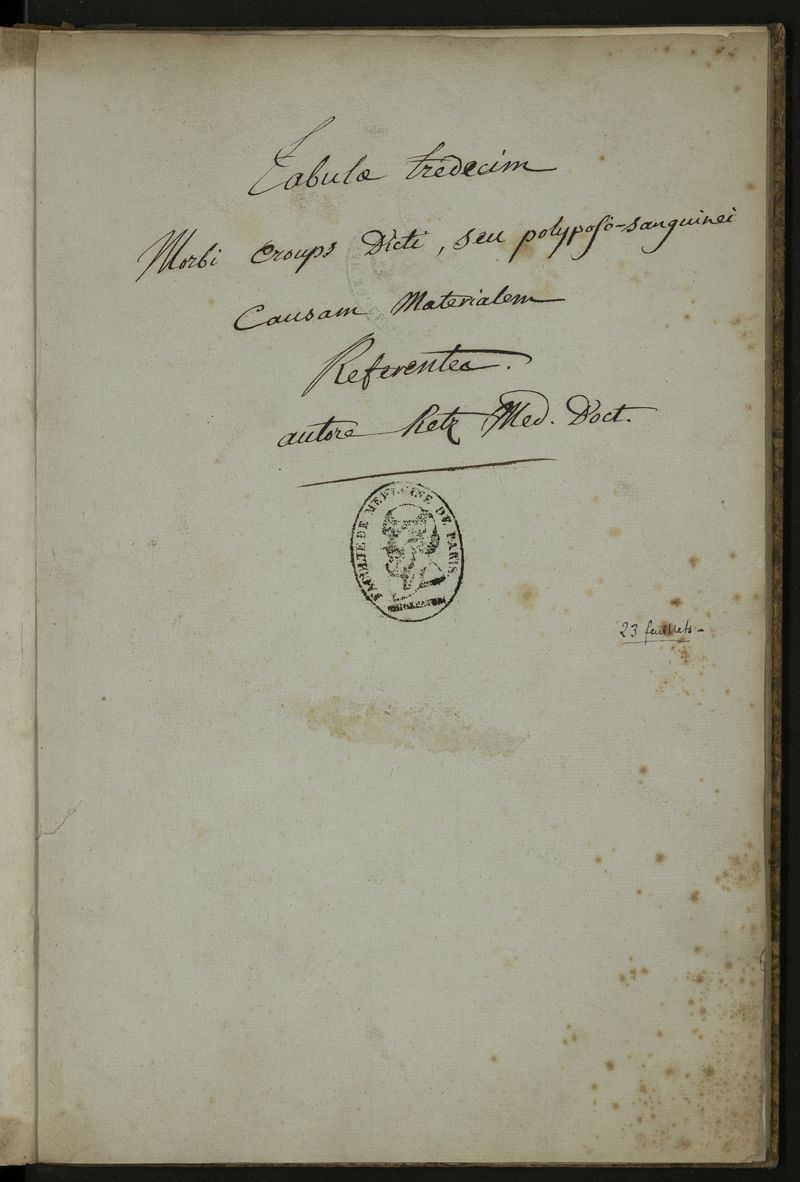 Tabulæ tredecim
Morbi croups Dicti, seu polyposo-sanguinei
Causam Materialem
Referentes.
autore Retz Med. Doct.
FACULTÉ DE MÉDECINE DE PARIS
23 feuillets